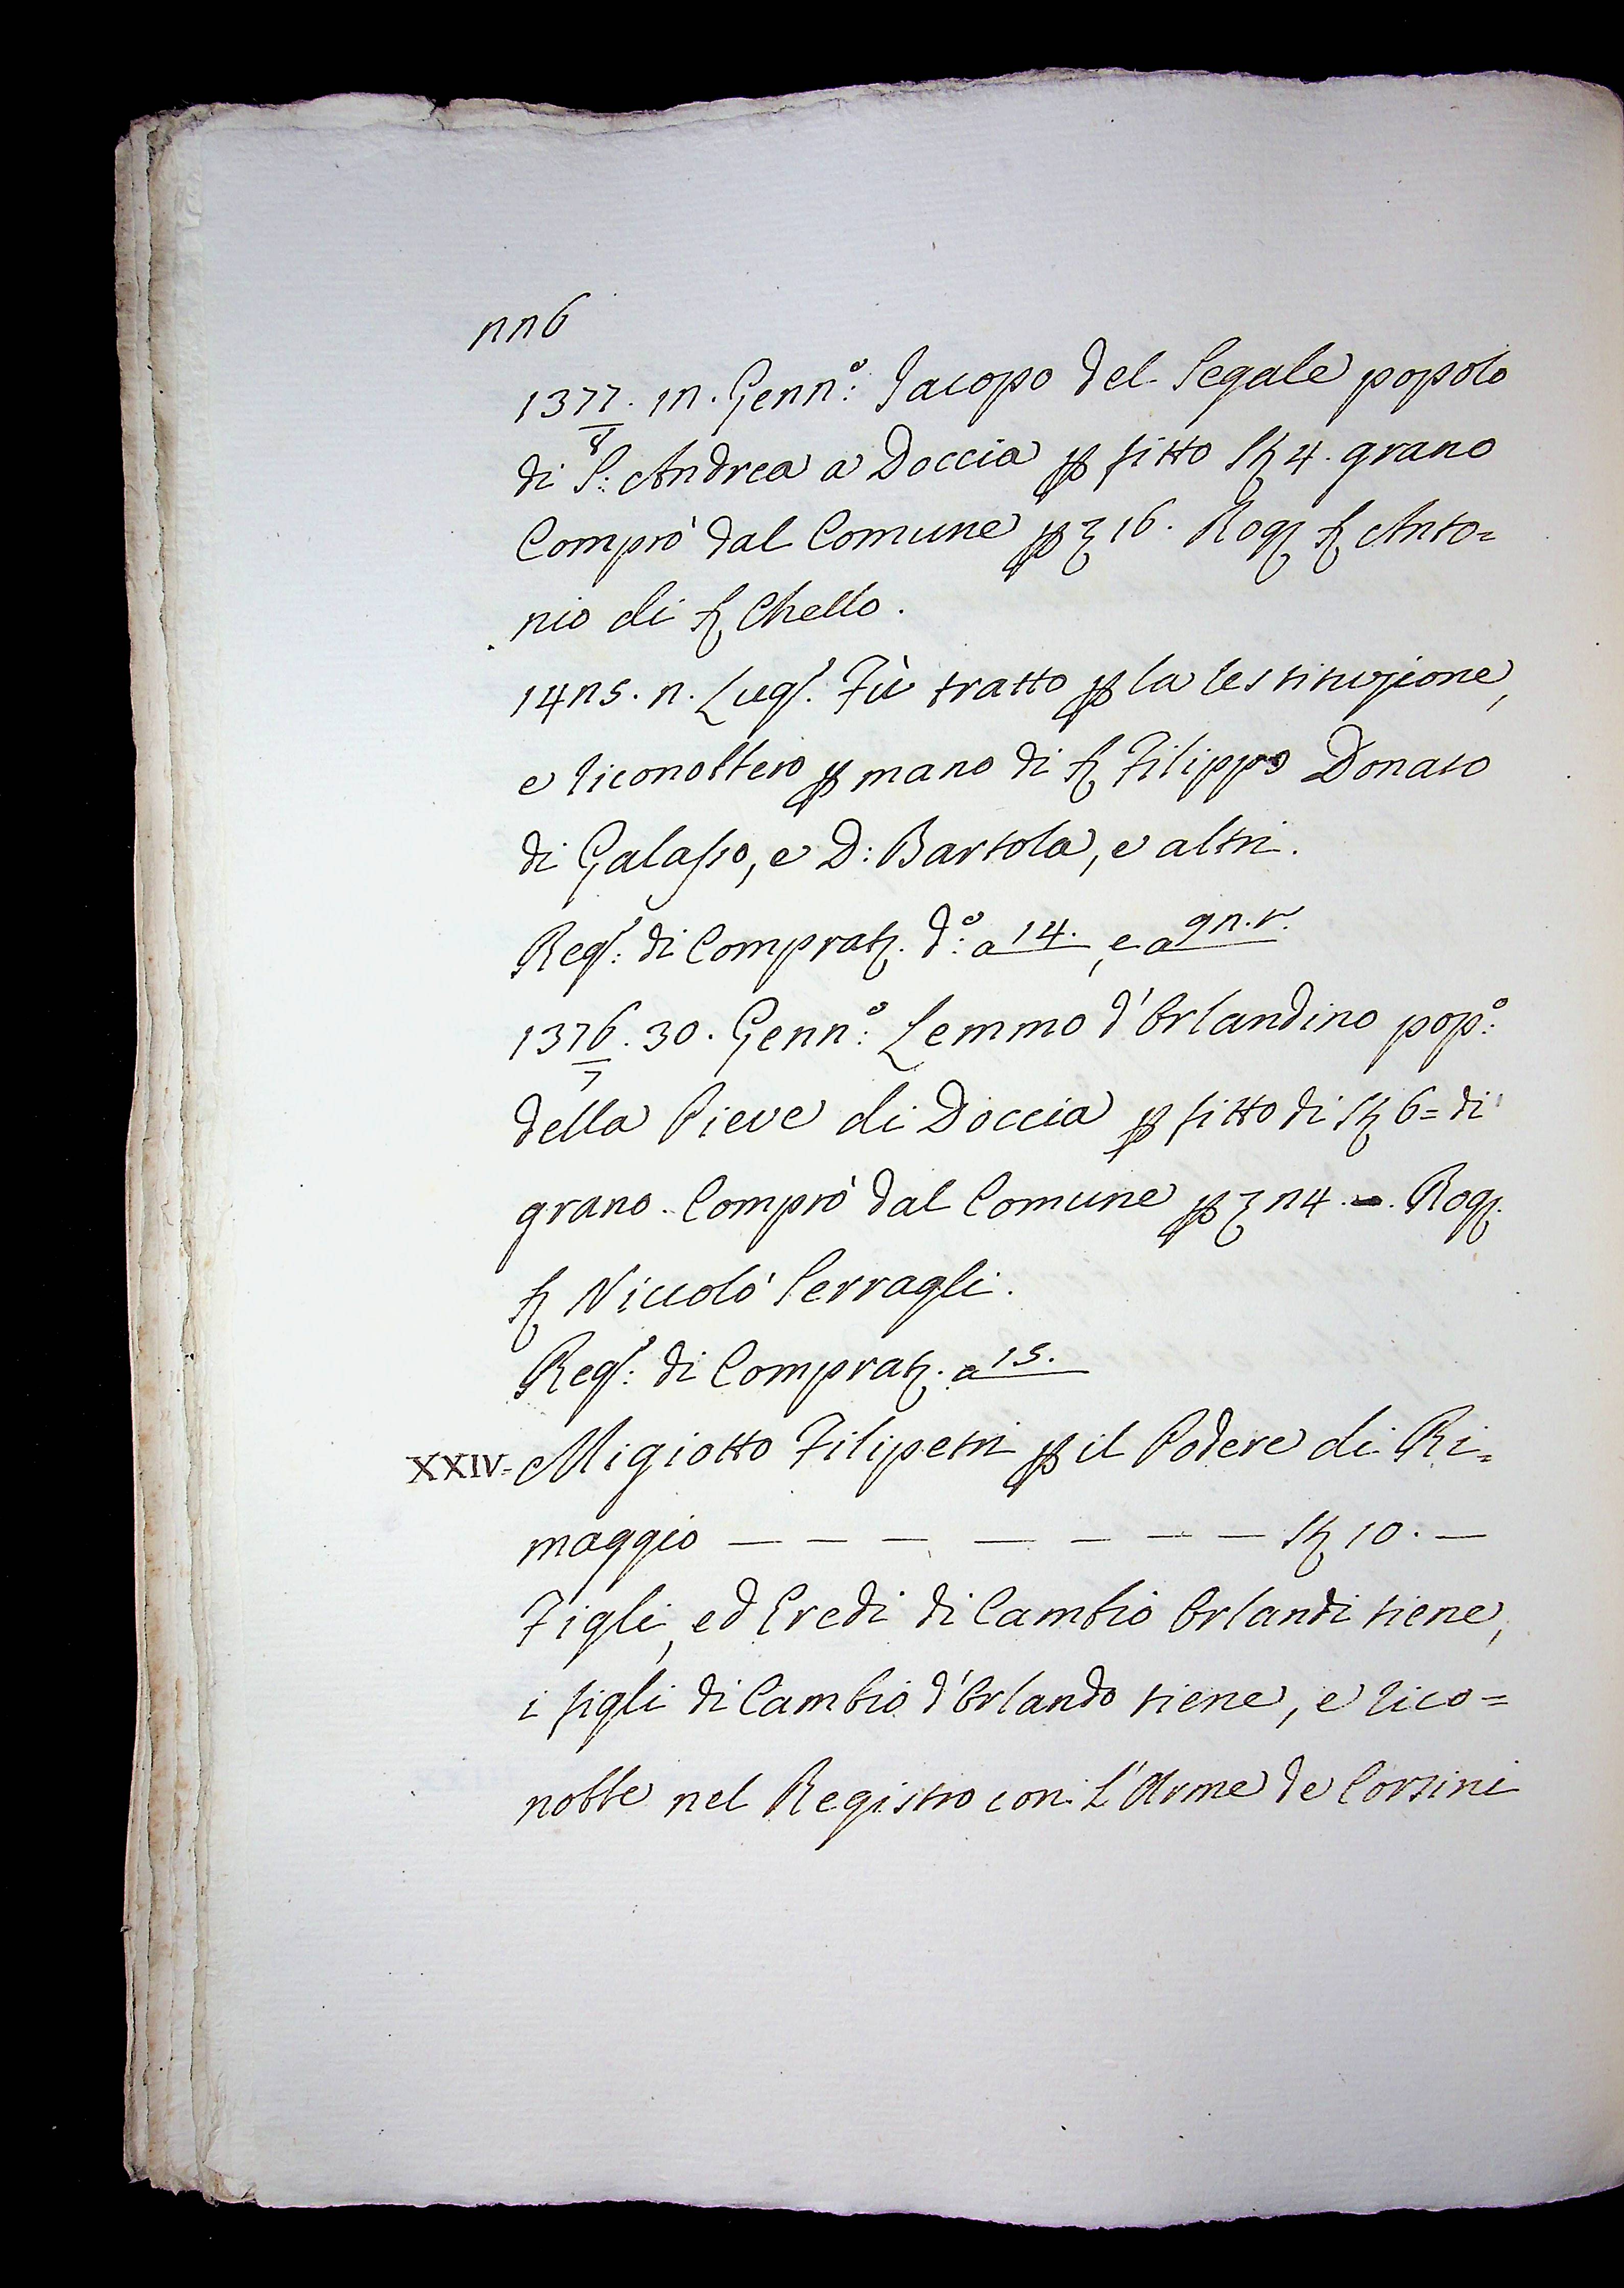 226
1377/8. 12. Genn:º Jacopo del Segale popolo
di S: Andrea a Doccia p fitto St 4. grano
Comprò dal Comune p ƒ 16. Rog. S. Anto=
nio di S. Chello.
1425. 2. Lug.º Fù tratto p la restituzione,
e riconobbero p mano di S. Filippo Donato
di Galasso, e D: Bartola, e altri.
Reg.º: di Comprat. d:º a 14. , e a 92.r.
1376/7. 30. Genn:º Lemmo d'Orlandino pop:º
della Pieve di Doccia p fitto di St 6= di
grano. Comprò dal Comune p ƒ 24. Rog.
S. Niccolò Serragli.
Reg.º: di Comprat. a 15.
XXIV= Migiotto Filipetri p il Podere di Ri=
maggio — — — — — — — St 10. —
Figli, ed Eredi di Cambio Orlandi tiene,
i figli di Cambio d'Orlando tiene, e rico=
nobbe nel Registro con L'Arme de Corsini